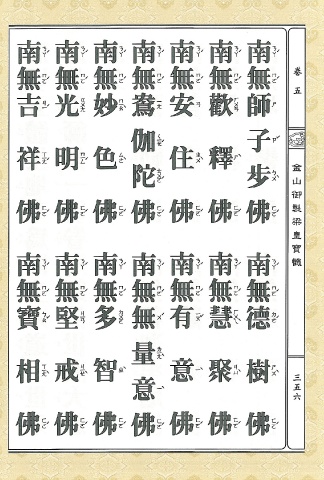 卷五
金山御製梁皇寶懺
三五六
南無師子步佛 南無德樹佛
南無歡釋佛 南無慧聚佛
南無安住佛 南無有意佛
南無鴦伽陀佛 南無無量意佛
南無妙色佛 南無多智佛
南無光明佛 南無堅戒佛
南無吉祥佛 南無寶相佛